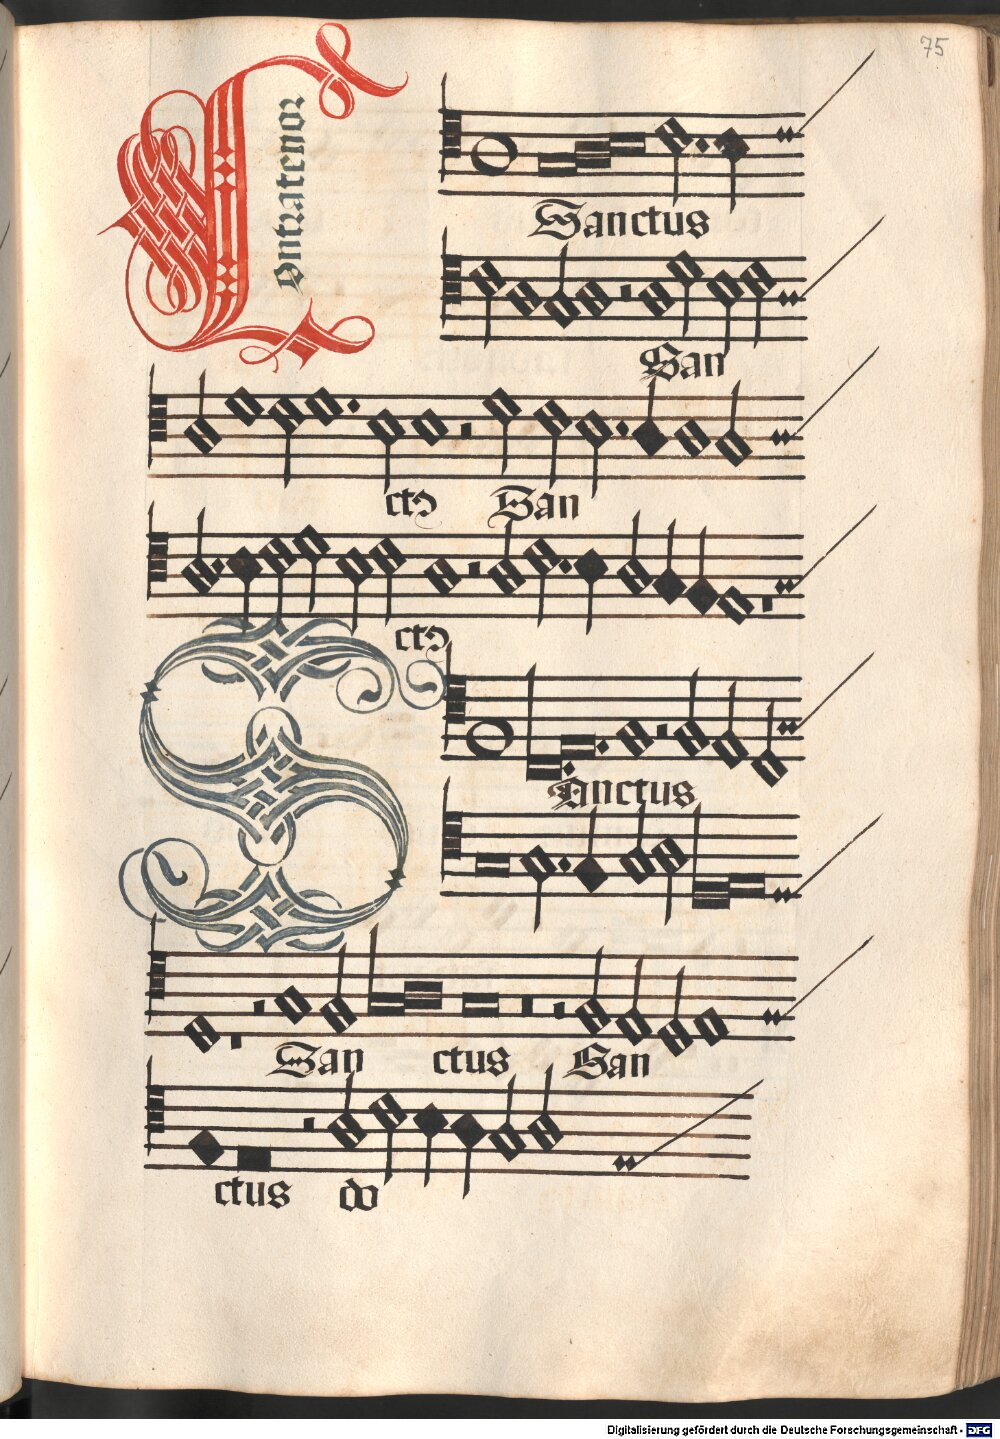 75
Contratenor
Sanctus
San
ctꝰ San
ctꝰ
Sanctus
San ctus San
ctus do
Digitalisierung gefördert durch die Deutsche Forschungsgemeinschaft - DFG